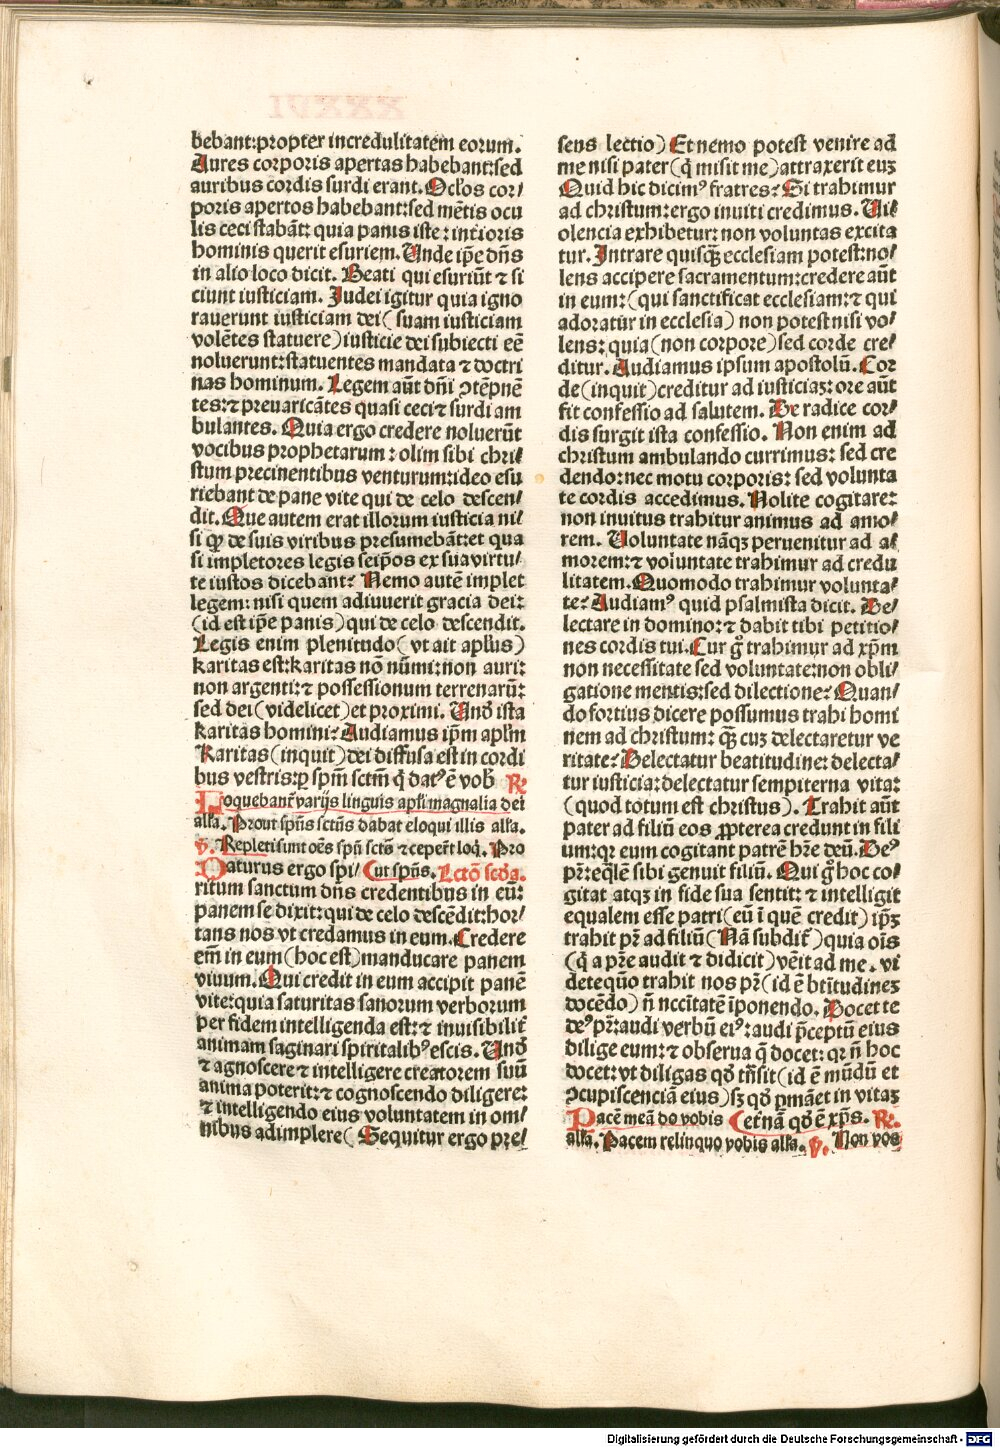 bebant:propter incredulitatem eorum.
Aures corporis apertas habebant:sed
auribus cordis surdi erant. Oclos cor/
poris apertos habebant:sed mētis ocu
lis ceci stabāt: quia panis iste: intīoris
hominis querit esuriem. Unde ip̄e dn̄s
in alio loco dicit. Beati qui esuriūt ⁊ si
ciunt iusticiam. Judei igitur quia igno
rauerunt iusticiam dei( suam iusticiam
volētes statuere) iusticie dei subiecti eē
noluerunt:statuentes mandata ⁊ doctri
nas hominum. Legem aūt dn̄i ↄtēpnē
tes:⁊ preuaricātes quasi ceci ⁊ surdi am
bulantes. Quia ergo credere noluerūt
vocibus prophetarum : olim sibi chri/
stum precinentibus venturum:ideo esu
riebant de pane vite qui de celo descen/
dit. Que autem erat illorum iusticia ni/
si qꝫ de suis viribus presumebāt:et qua
si impletores legis seip̄os ex sua virtu/
te iustos dicebant? Nemo autē implet
legem: nisi quem adiuuerit gracia dei:
(id est ip̄e panis) qui de celo descendit.
Legis enim plenitudo (vt ait apl̄us)
karitas est:karitas nō nūmi:non auri:
non argenti:⁊ possessionum terrenarū:
sed dei (videlicet) et proximi. Und̄ ista
karitas homini? Audiamus ip̄m apl̄m
Karitas (inquit) dei diffusa est in cordi
bus vestris:ꝑ sp̄m sctm̄ q̄ datꝰ ē vob̄ R̄
Loquebant᷑ varijs linguis apl̄i magnalia dei
alla. Prout sp̄ūs sctūs dabat eloqui illis alla.
v̄. Repleti sunt oēs sp̄ū sctō ⁊ ceper̄t loq̄. Pro
Daturus ergo spi/ Cut sp̄ūs. Lctō scd̄a.
ritum sanctum dn̄s credentibus in eū:
panem se dixit: qui de celo descēdit:hor/
tans nos vt credamus in eum. Credere
em̄ in eum (hoc est) manducare panem
viuum. Qui credit in eum accipit panē
vite:quia saturitas sanorum verborum
per fidem intelligenda est:⁊ inuisibilit᷑
animam saginari spiritalibꝰ escis. Und̄
⁊ agnoscere ⁊ intelligere creatorem suū
anima poterit:⁊ cognoscendo diligere:
⁊ intelligendo eius voluntatem in om/
nibus adimplere( Sequitur ergo pre/
sens lectio) Et nemo potest venire ad
me nisi pater (q̄ misit me) attraxerit euꝫ
Quid hic dicimꝰ fratres? Si trahimur
ad christum: ergo inuiti credimus. Ui/
olencia exhibetur: non voluntas excita
tur. Intrare quisqꝫ ecclesiam potest:no/
lens accipere sacramentum:credere aūt
in eum:(qui sanctificat ecclesiam:⁊ qui
adoratur in ecclesia) non potest nisi vo/
lens: quia (non corpore) sed corde cre/
ditur. Audiamus ipsum apostolū. Cor
de (inquit) creditur ad iusticiaꝫ: ore aūt
fit confessio ad salutem. De radice cor/
dis surgit ista confessio. Non enim ad
christum ambulando currimus: sed cre
dendo:nec motu corporis: sed volunta
te cordis accedimus. Nolite cogitare:
non inuitus trahitur animus ad amo/
rem. Uoluntate nāqꝫ peruenitur ad a/
morem:⁊ voluntate trahimur ad credu
litatem. Quomodo trahimur volunta/
te? Audiamꝰ quid psalmista dicit. De/
lectare in domino:⁊ dabit tibi petitio/
nes cordis tui. Cur g̊ trahimur ad xp̄m
non necessitate sed voluntate:non obli/
gatione mentis:sed dilectione? Quan/
do fortius dicere possumus trahi homi
nem ad christum: qꝫ cuꝫ delectaretur ve
ritate? Delectatur beatitudine: delecta/
tur iusticia:delectatur sempiterna vita:
(quod totum est christus). Trahit aūt
pater ad filiū eos ꝓpterea credunt in fili
um:qꝛ eum cogitant patrē hr̄e deū. Deꝰ
pr̄:eq̄lē sibi genuit filiū. Qui g̊ hoc co/
gitat atqꝫ in fide sua sentit: ⁊ intelligit
equalem esse patri (eū ī quē credit) ip̄ꝫ
trahit pr̄ ad filiū ( Nā subdit᷑ ) quia oīs
(q̄ a pr̄e audit ⁊ didicit) vēit ad me. vi
detequō trahit nos pr̄( id ē bt̄itudinez
docēdo) n̄ nccītatē īponendo. Docet te
deꝰ pr̄:audi verbū eiꝰ: audi p̄ceptū eius
dilige eum:⁊ obserua q̄ docet: qꝛ n̄ hoc
docet:vt diligas qd̄ trn̄sit (id ē mūdū et
ↄcupiscencia eius) sꝫ qd̄ ꝑmāet in vitaꝫ
Pacē meā do vobis Cet᷑nā qd̄ ē xp̄s. R̄.
alla. Pacem relinquo vobis alla. v̄. Non vos
Digitalisierung gefördert durch die Deutsche Forschungsgemeinschaft - DFG